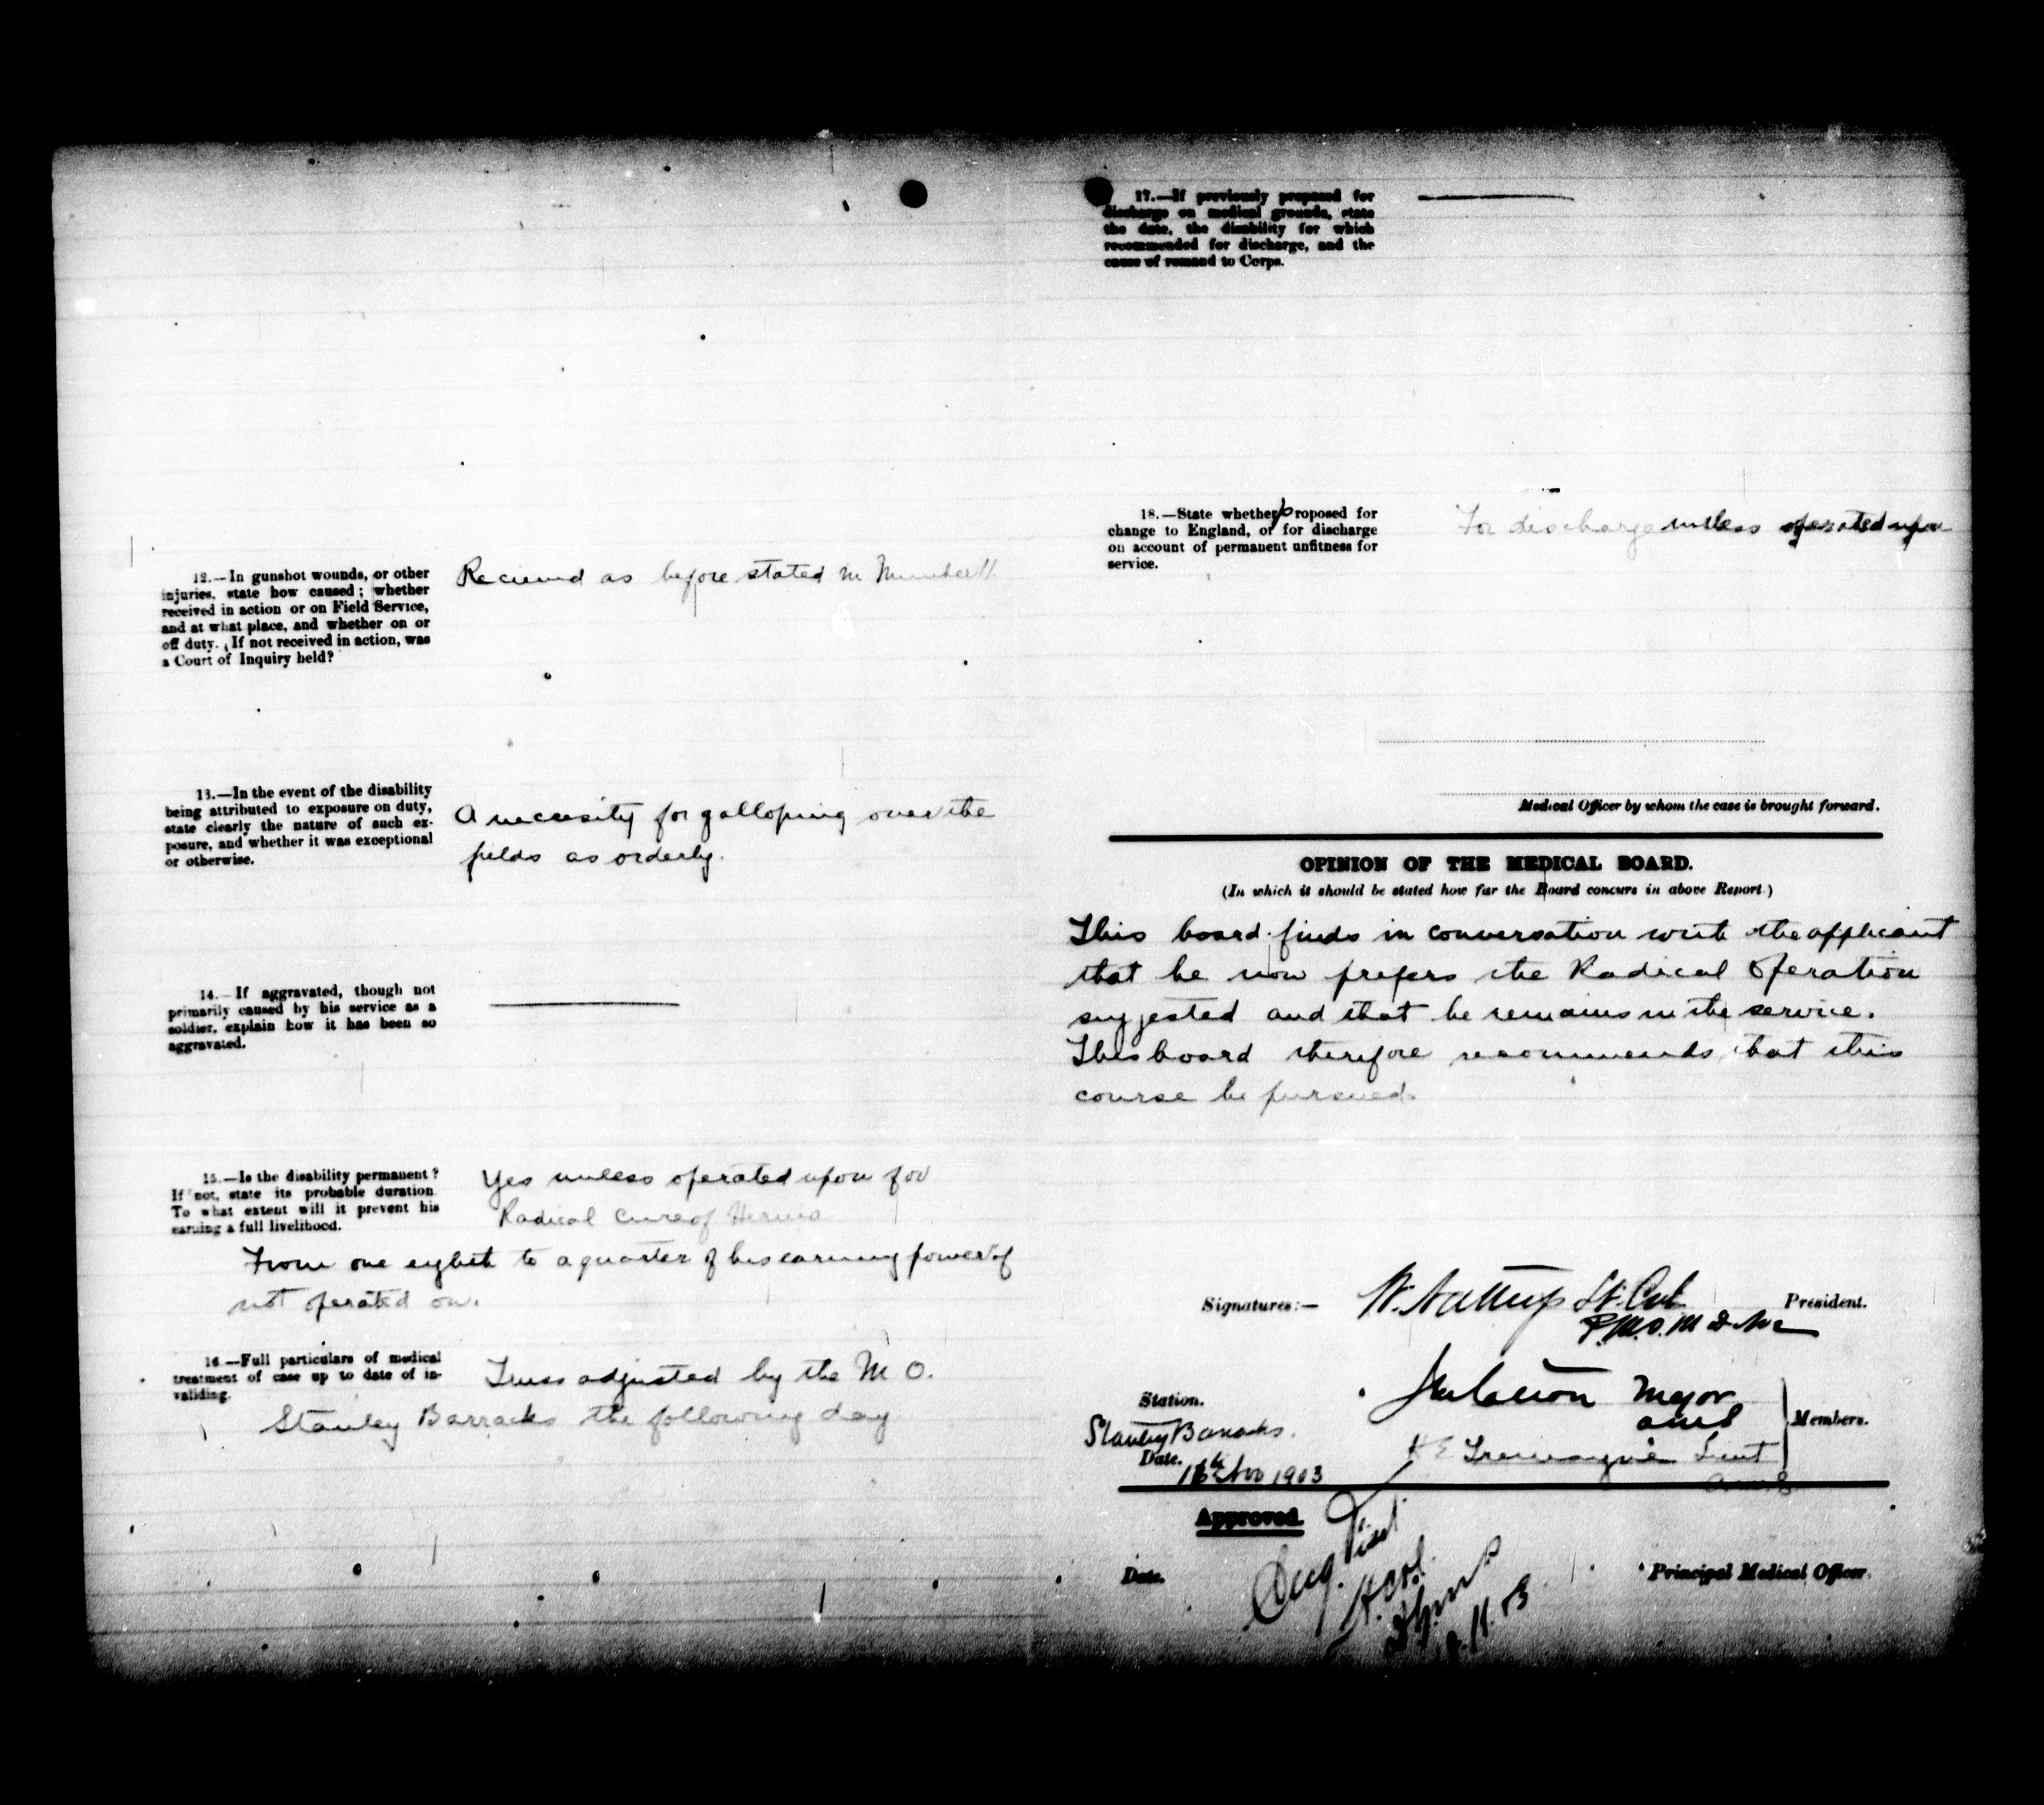 12.—In gunshot wounds, or other
injuries, state how caused; whether
received in action or on Field Service,
and at what place, and whether on or
off duty. If not received in action, was
a Court of Inquiry held?
Recieved as before stated in Number 11
13.—In the event of the disability
being attributed to exposure on duty,
state clearly the nature of such ex-
posure, and whether it was exceptional
or otherwise.
A necessity for galloping over the
fields as orderly.
14.—If aggravated, though not
primarily caused by his service as a
soldier, explain how it has been so
aggravated.
15.—Is the disability permanent?
If not, state its probable duration
To what extent will it prevent his
earning a full livelihood.
Yes unless operated upon for
Radical cure of Hernia
From one eighth to a quarter of his earning power if
not operated on.
16.—Full particulars of medical
treatment of case up to date of in-
validing.
Truss adjusted by the M O.
Stanley Barracks the following day
17.—If previously proposed for
discharge on medical grounds, state
the date, the disability for which
recommended for discharge, and the
cause of remand to Corps.
18.—State whether proposed for
change to England, or for discharge
on account of permanent unfitness for
service.
For discharge unless operated upon
Medical Officer by whom the case is brought forward.
OPINION OF THE MEDICAL BOARD.
(In which it should be stated how far the Board concurs in above Report.)
This board finds in conversation with the applicant
that he now prefers the Radical Operation
suggested and that he remains in the service.
This board therefore recommends that this
course be pursued.
Signatures:— W. Nattress Lt. Col President.
P.M.O. M D No 2
Major
AMS
Members.
Lieut
Station.
Stanley Barracks.
Date.
Nov 1903
Approved.
Date.
11.03
Principal Medical Officer.